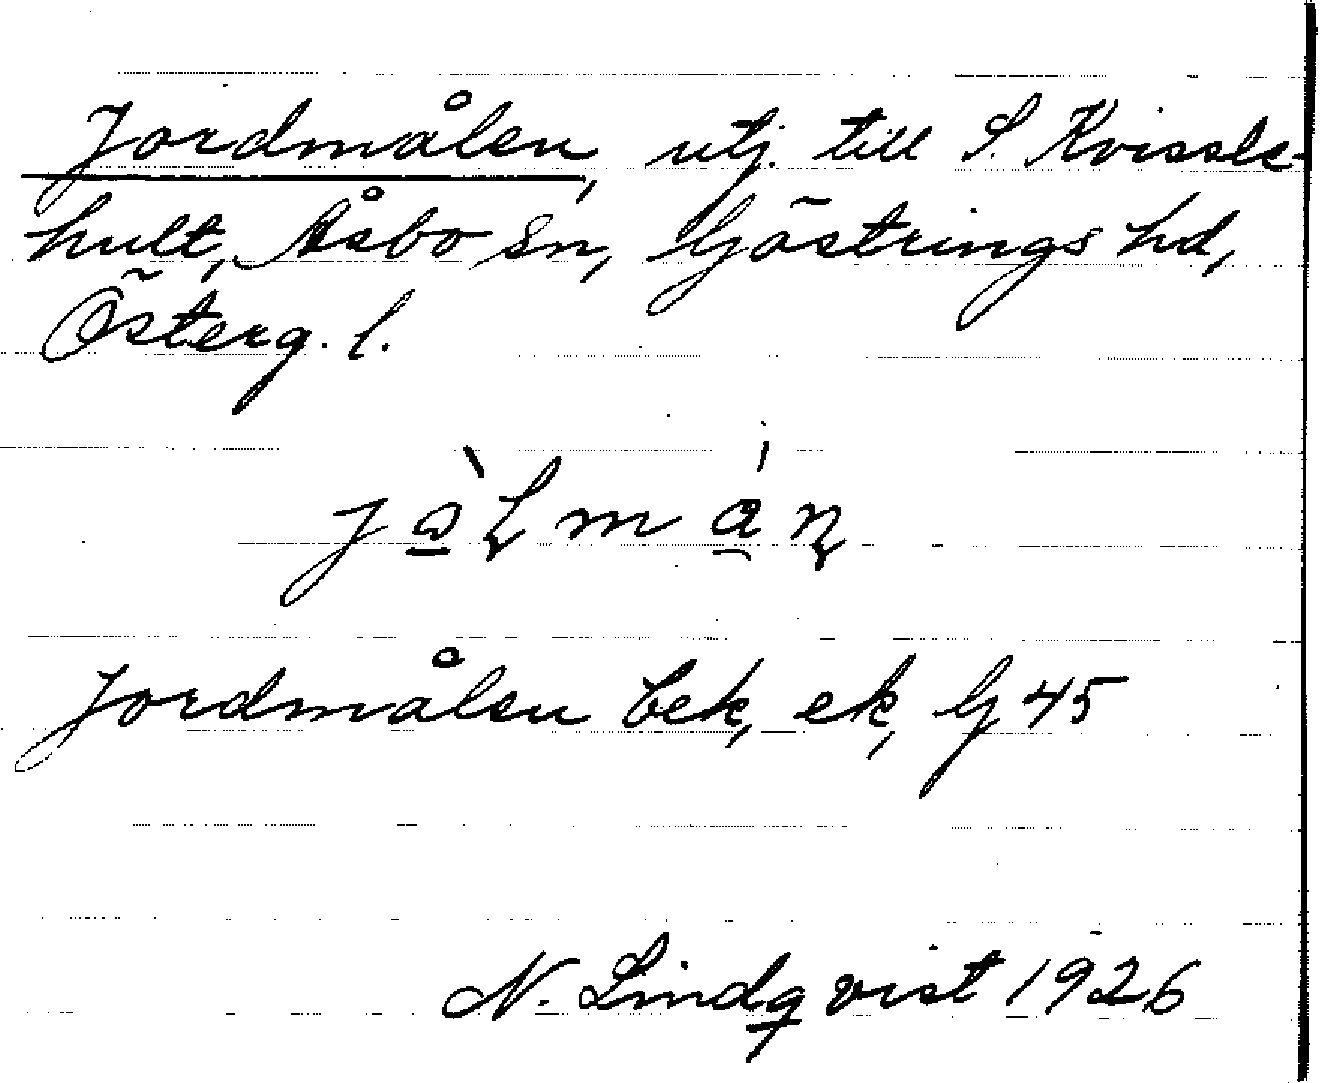 Jordmålen, utj. till S. Kvissls-
hult, Åsbo sn, Göstrings hd,
Österg. l.
Jordmålen bek, ek, G 45
N. Lindqvist 1926